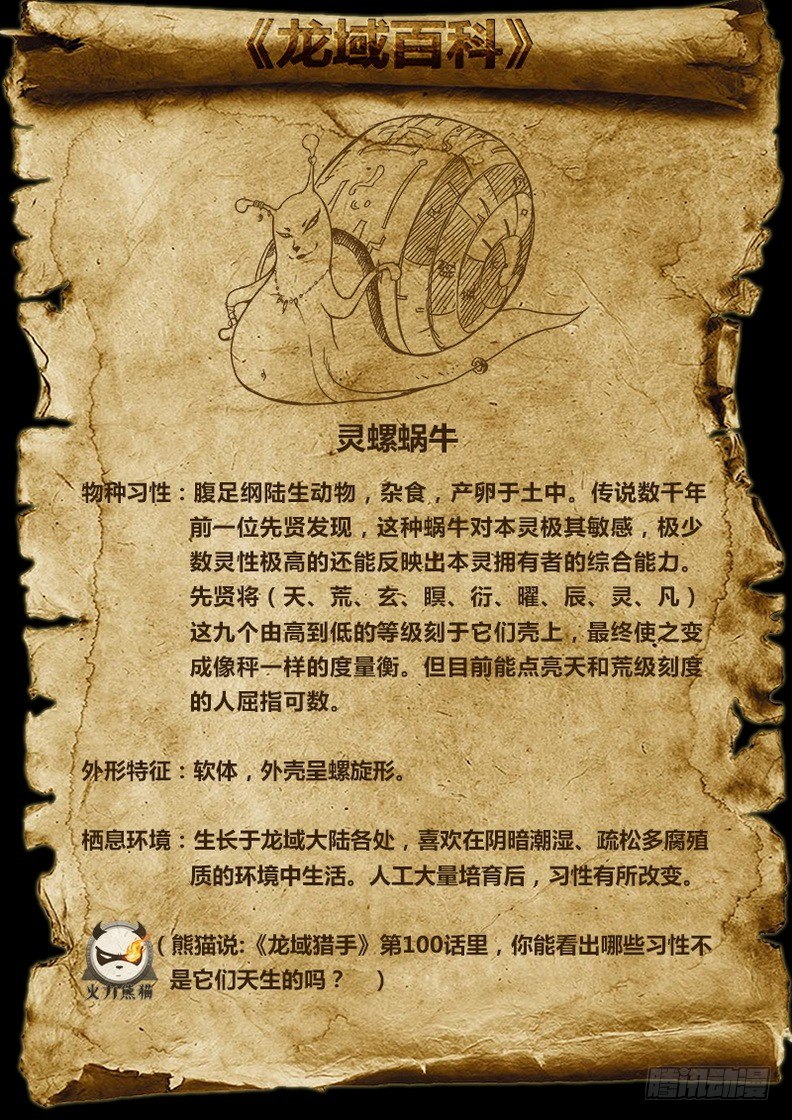 《龙域百科》
灵螺蜗牛
物种习性：腹足纲陆生动物，杂食，产卵于土中。传说数千年
前一位先贤发现，这种蜗牛对本灵极其敏感，极少
数灵性极高的还能反映出本灵拥有者的综合能力。
先贤将（天、荒、玄、瞑、衍、曜、辰、灵、凡）
这九个由高到低的等级刻于它们壳上，最终使之变
成像秤一样的度量衡。但目前能点亮天和荒级刻度
的人屈指可数。
外形特征：软体，外壳呈螺旋形。
栖息环境：生长于龙域大陆各处，喜欢在阴暗潮湿、疏松多腐殖
质的环境中生活。人工大量培育后，习性有所改变。
（熊猫说:《龙域猎手》第100话里，你能看出哪些习性不
是它们天生的吗？　）
火力熊猫
腾讯动漫